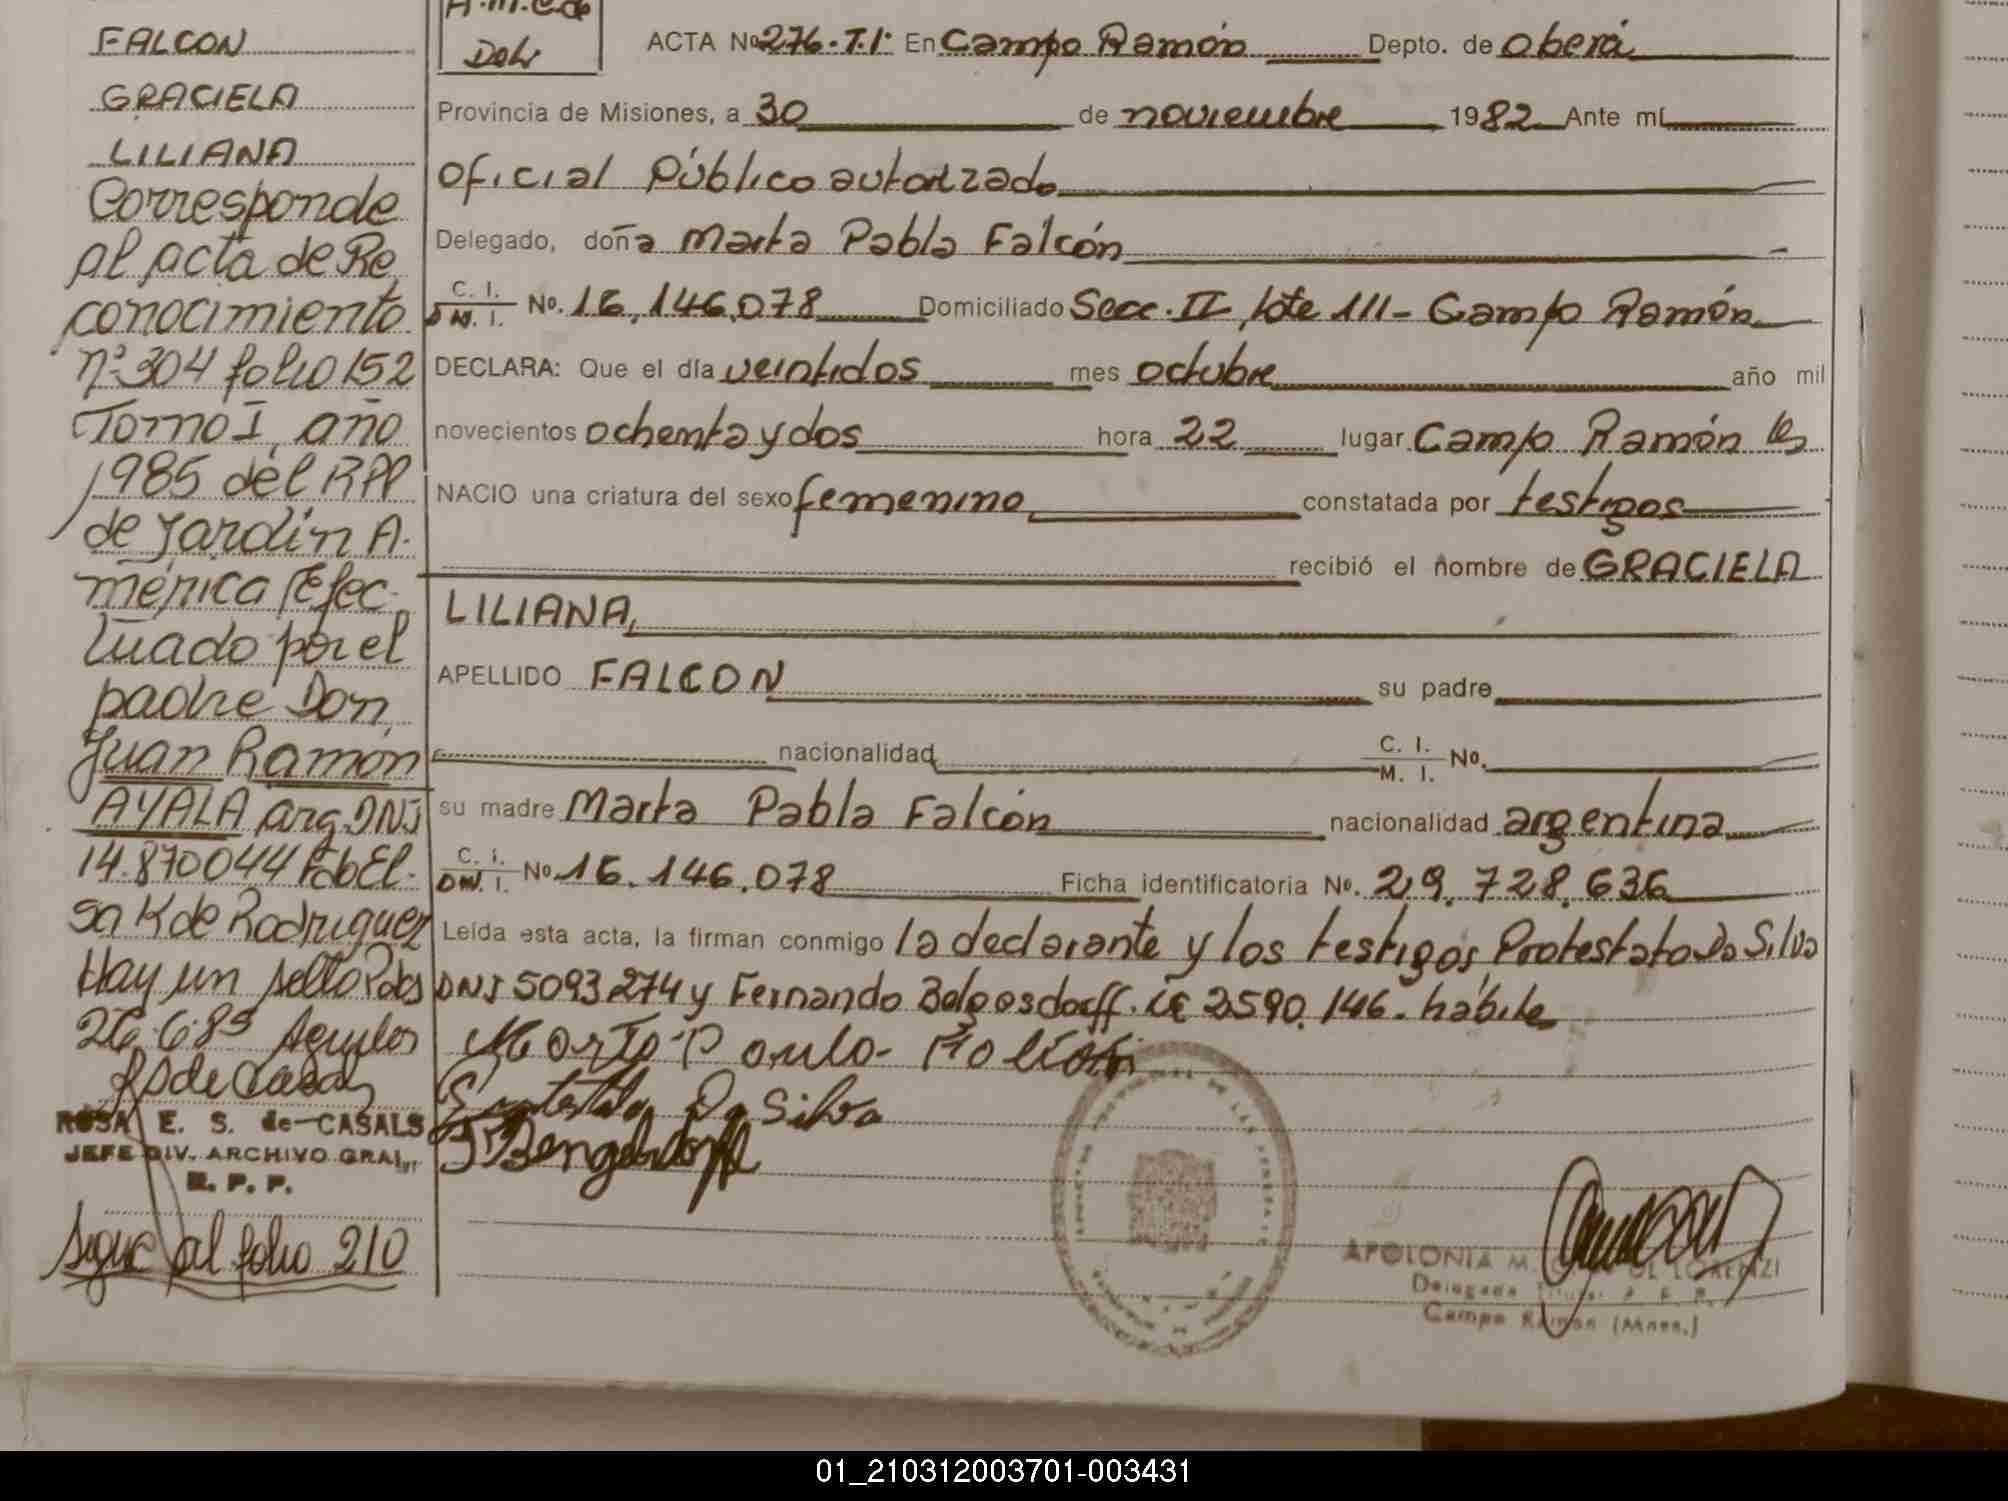 FALCON
GRACIELA
LILIANA
Corresponde
al acta de Re
conocimiento
nº 304 folio 152
Tomo I, año
1985 del RPP
de Jardin A-
mérica Efec-
tuado por el
padre Don
Juan Ramón
AYALA arg DNI
14.870044
de Rodriguez
Hay un sello Pdas
26.6.85
ROSA E. S. de CASALS
JEFE DIV. ARCHIVO GRAL.
R. P. P.
Sigue al folio 210
ACTA Nº 276-T.1º En Campo Ramón Depto. de Oberá
Provincia de Misiones, a 30 de noviembre 1982 Ante mí
oficial Público autorizado
Delegado, doña Marta Pabla Falcón
C. I. DN. I. Nº. 16.146.078 Domiciliado Secc. II, lote 111 - Campo Ramón
DECLARA: Que el día veintidos mes octubre año mil
novecientos ochenta y dos hora 22 lugar Campo Ramón
NACIO una criatura del sexo femenino constatada por testigos
recibió el nombre de GRACIELA
LILIANA,
APELLIDO FALCON su padre
nacionalidad C. I. M. I. Nº.
su madre Marta Pabla Falcón nacionalidad argentina
C. I. DN. I. Nº 16.146.078 Ficha identificatoria Nº. 29.728.636
Leída esta acta, la firman conmigo la declarante y los testigos Protestato Da Silva
DNI 5093274 y Fernando LE 2590.146. hábiles
Da Silva
APOLONIA M. DE LORENZI
Delegada Titular
Campo Ramón (Mnes.)
01_210312003701-003431